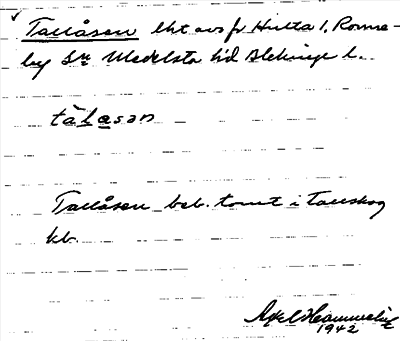 Tallåsen lht avs fr Hulta 1, Ronne-
by Sn Medelsta hd Blekinge l.
tàlåsan
Tallåsen beb. tomt i tallskog
kb.
Axel
1942